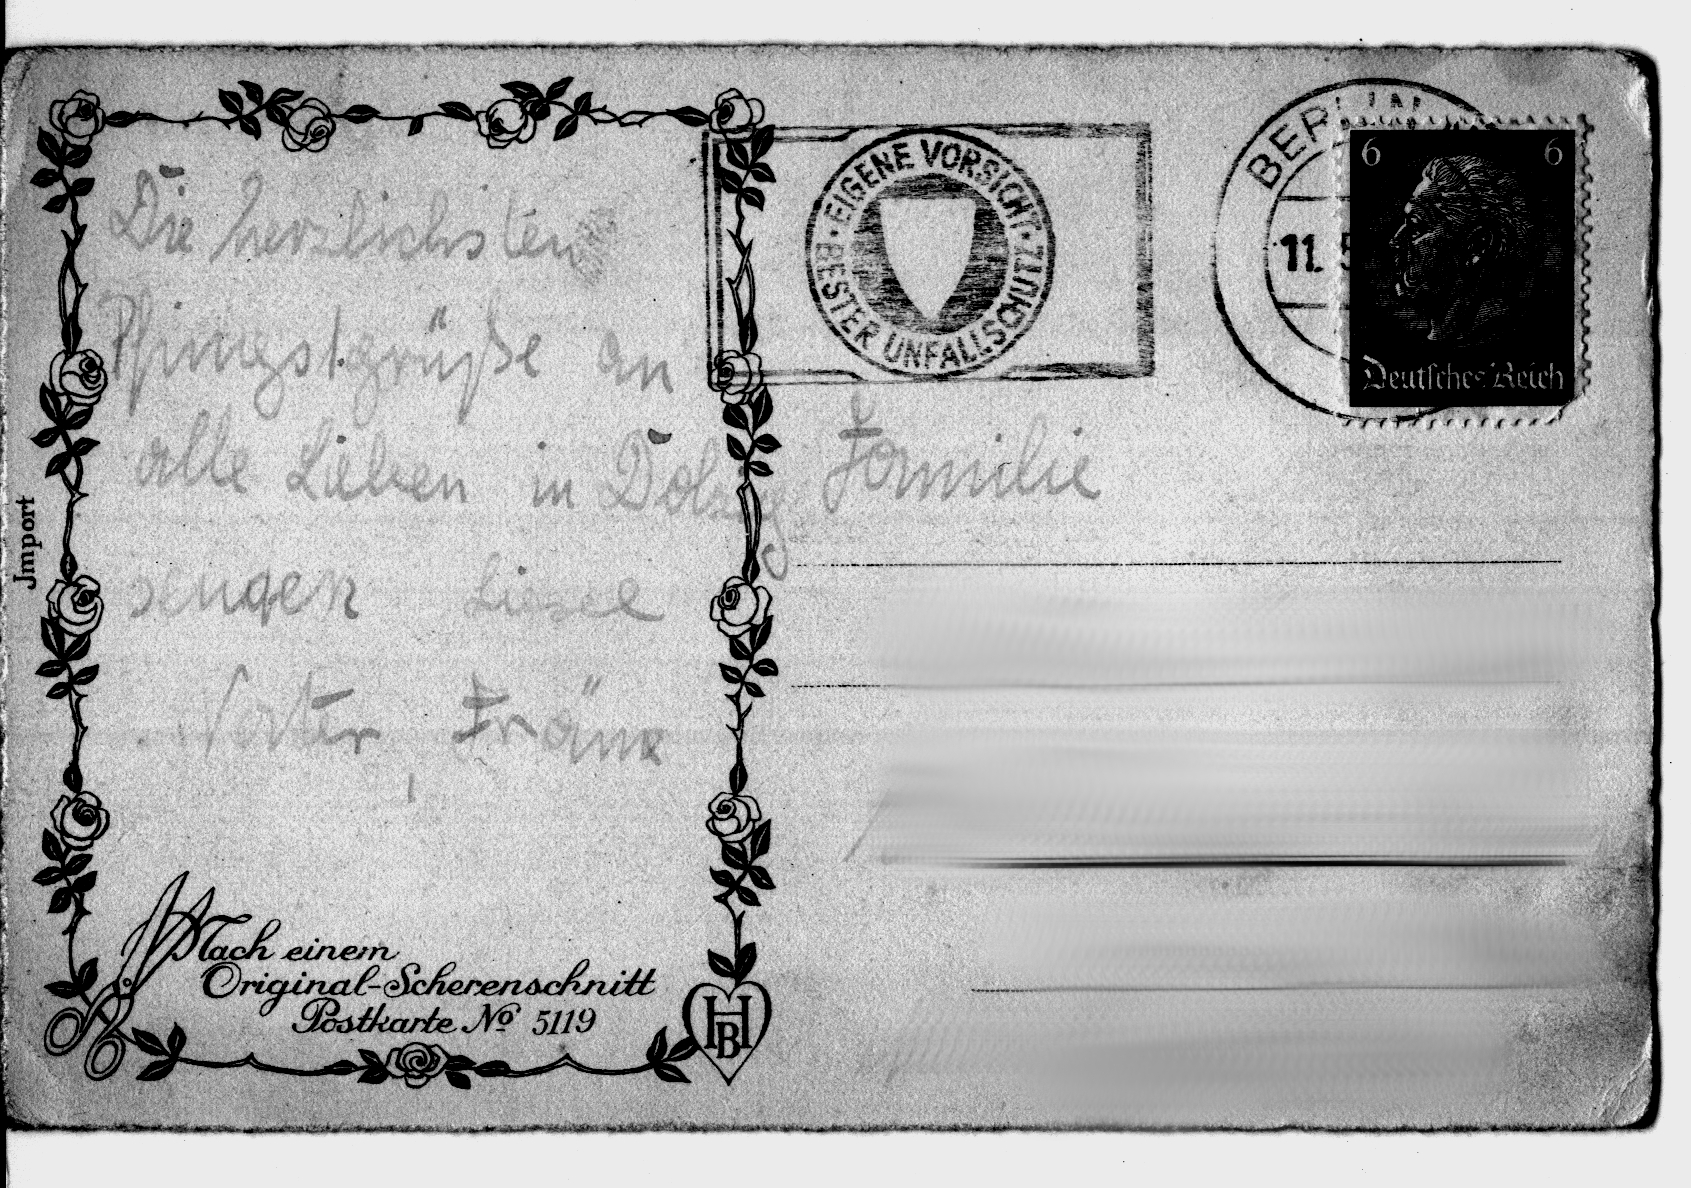 Die herzlichsten
Pfingstgrüße an
alle Lieben in
senden
Vater, Fränz
Jmport
Nach einem
Original-Scherenschnitt
Postkarte No 5119
HBH
EIGENE VORSICHT · BESTER UNFALLSCHUTZ ·
BERLIN
11. 5
6 6
Deutsches Reich
Familie